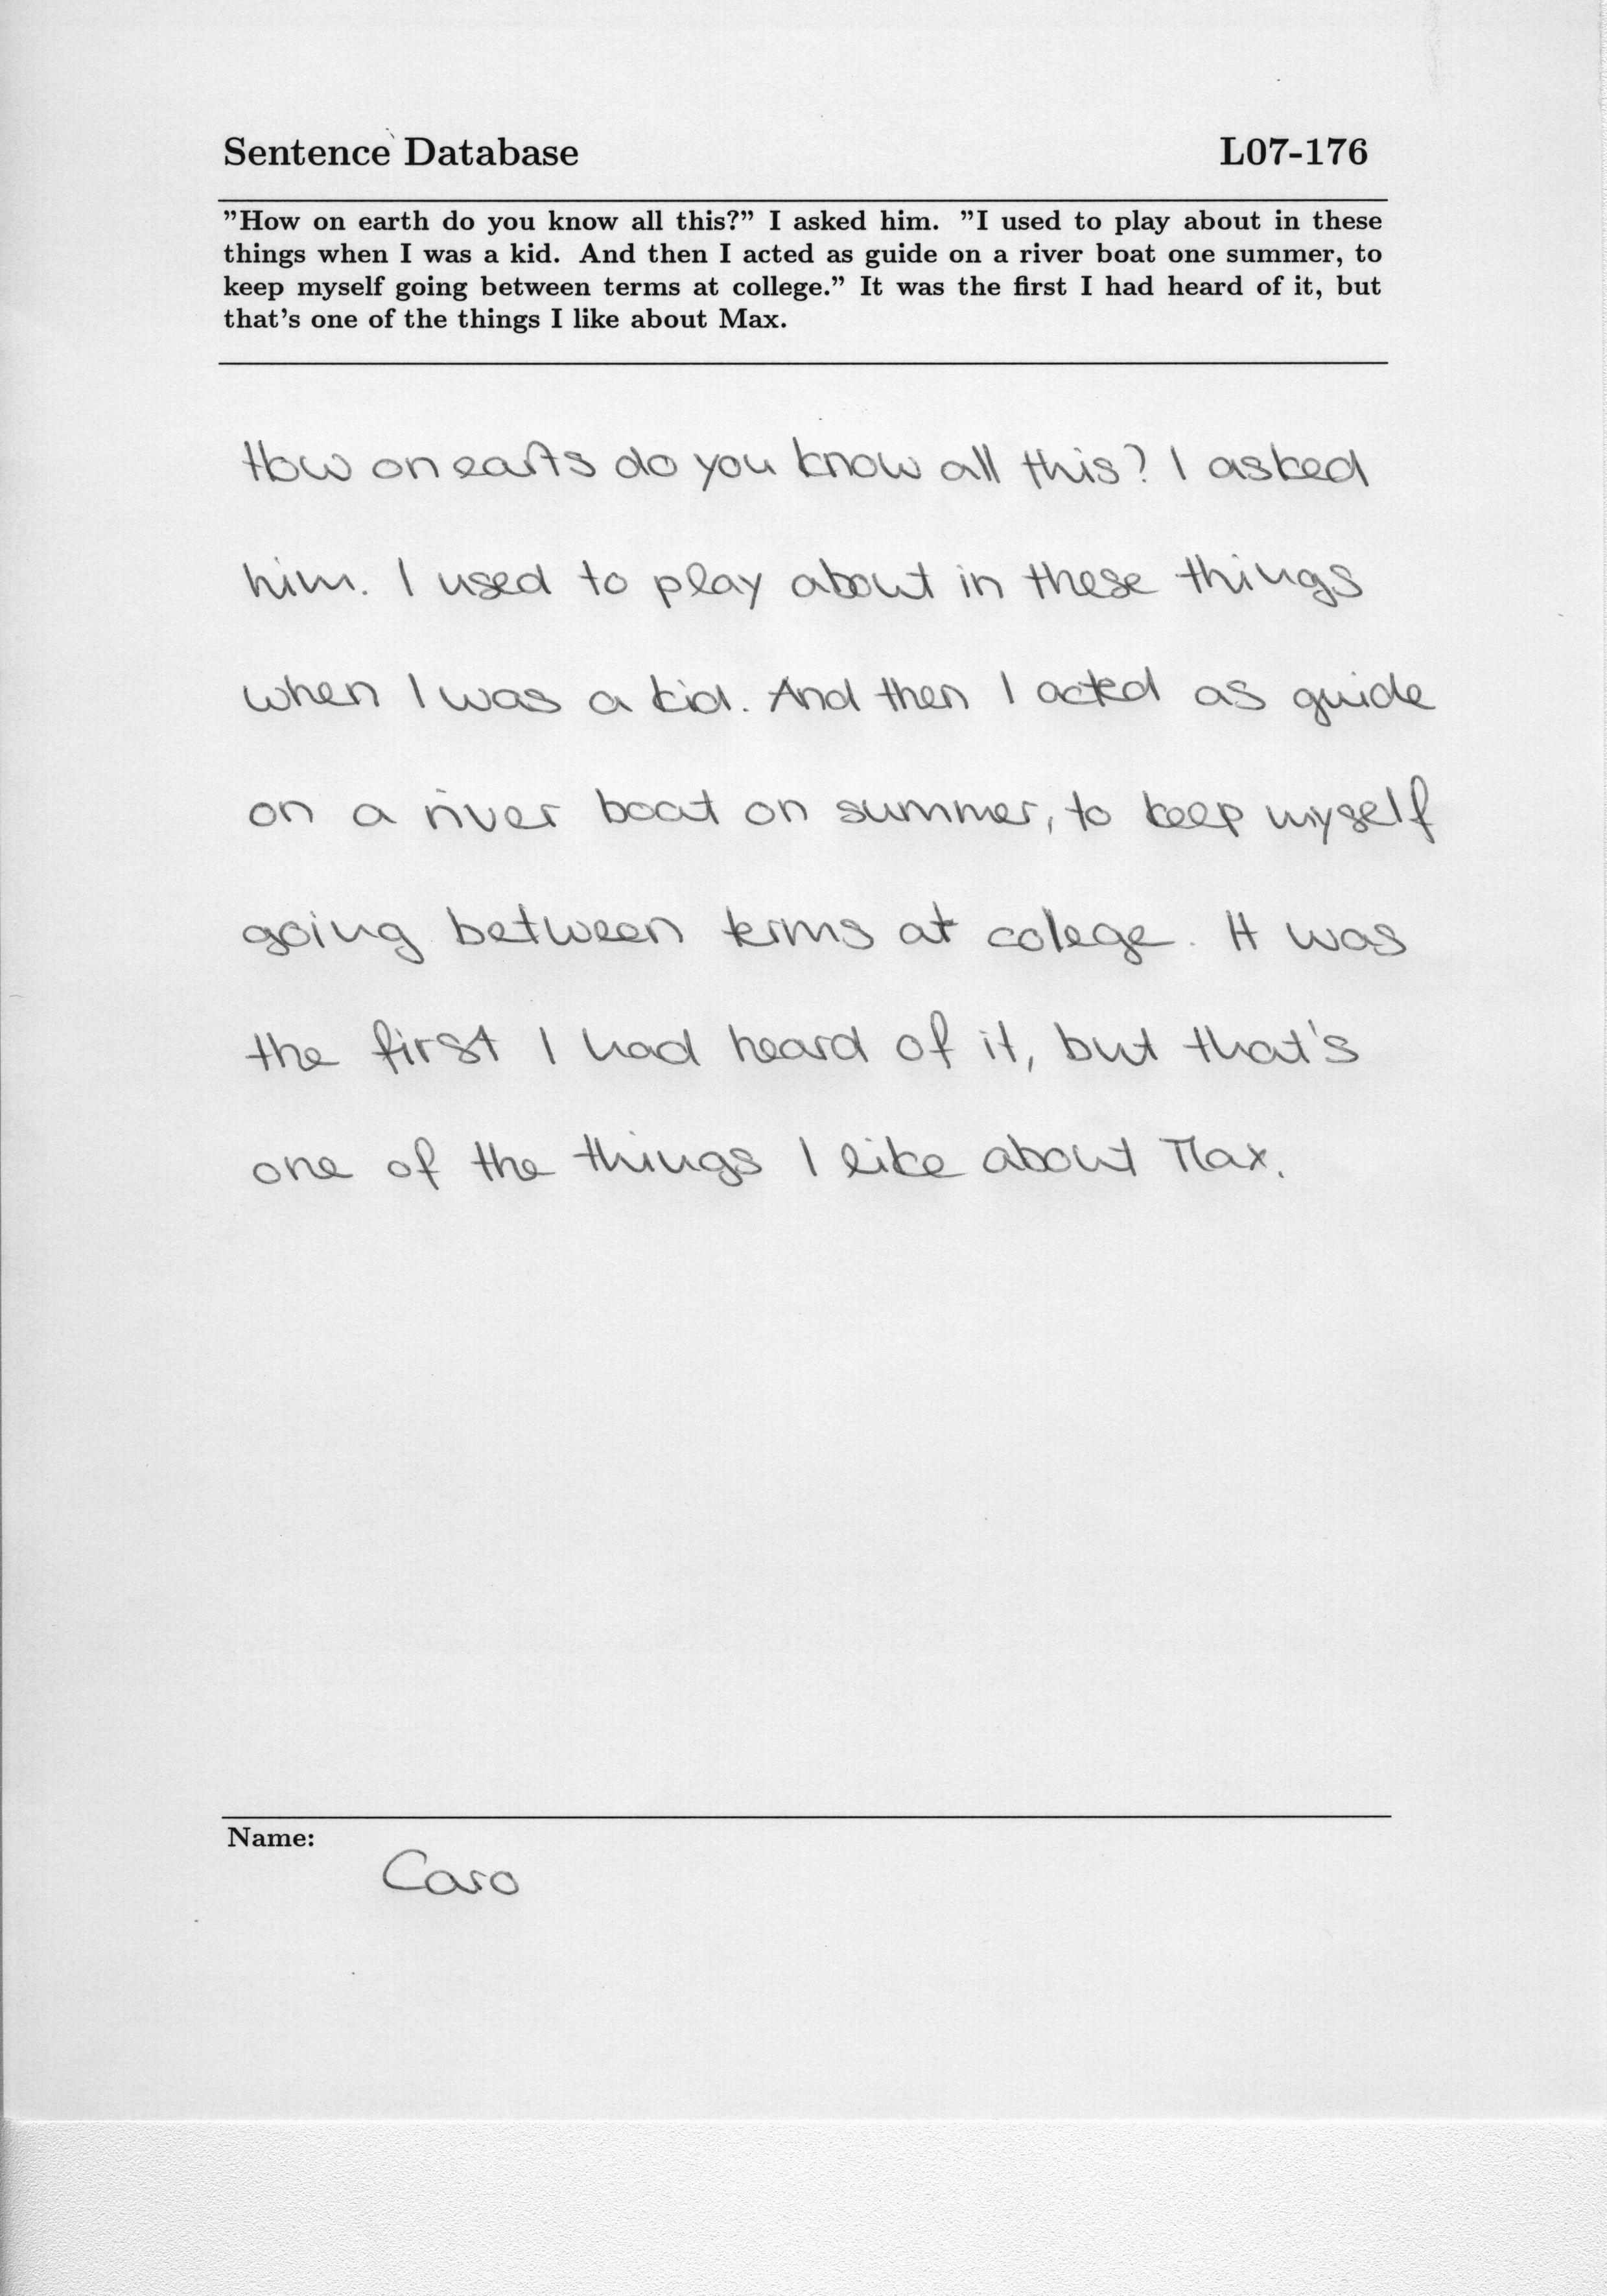 Sentence Database L07-176
"How on earth do you know all this?" I asked him. "I used to play about in these
things when I was a kid. And then I acted as guide on a river boat one summer, to
keep myself going between terms at college." It was the first I had heard of it, but
that's one of the things I like about Max.
How on earts do you know all this? I asked
him. I used to play about in these things
when I was a kid. And then I acted as guide
on a river boat on summer, to keep myself
going between terms at colege. It was
the first I had heard of it, but that's
one of the things I like about Max.
Name:
Caro